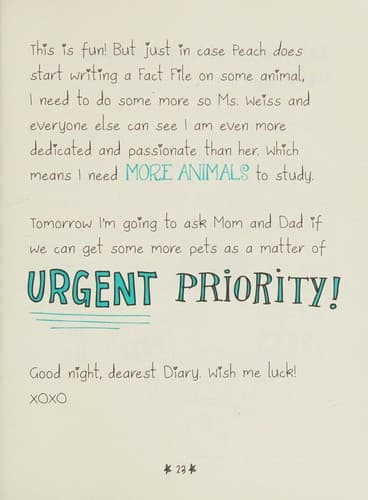 This is fun! But just in case Peach does
start writing a Fact File on some animal,
I need to do some more so Ms. Weiss and
everyone else can see I am even more
dedicated and passionate than her. Which
means I need MORE ANIMALS to study.
Tomorrow I'm going to ask Mom and Dad if
we can get some more pets as a matter of
URGENT PRIORITY!
Good night, dearest Diary. Wish me luck!
XOXO
* 23 *